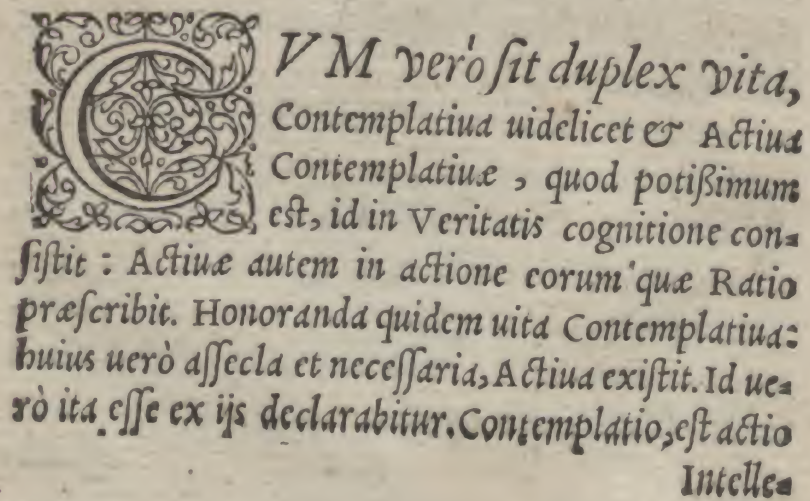 CVM verò ſit duplex vita,
Contemplatiua uidelicet & Actiua
Contemplatiuæ, quod potißimum
eſt, id in Veritatis cognitione con-
ſiſtit: Actiuæ autem in actione eorum quæ Ratio
præſcribit. Honoranda quidem uita Contemplatiua:
huius uerò aſſecla et neceſſaria, Actiua exiſtit. Id ue-
rò ita eſſe ex ijs declarabitur. Contemplatio, eſt actio
Intelle-